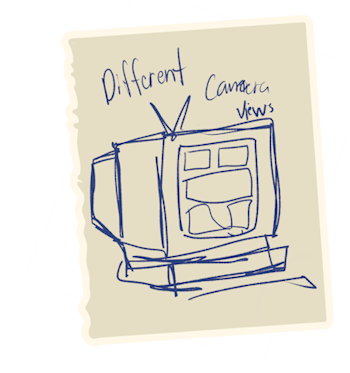 Different Camera
Views